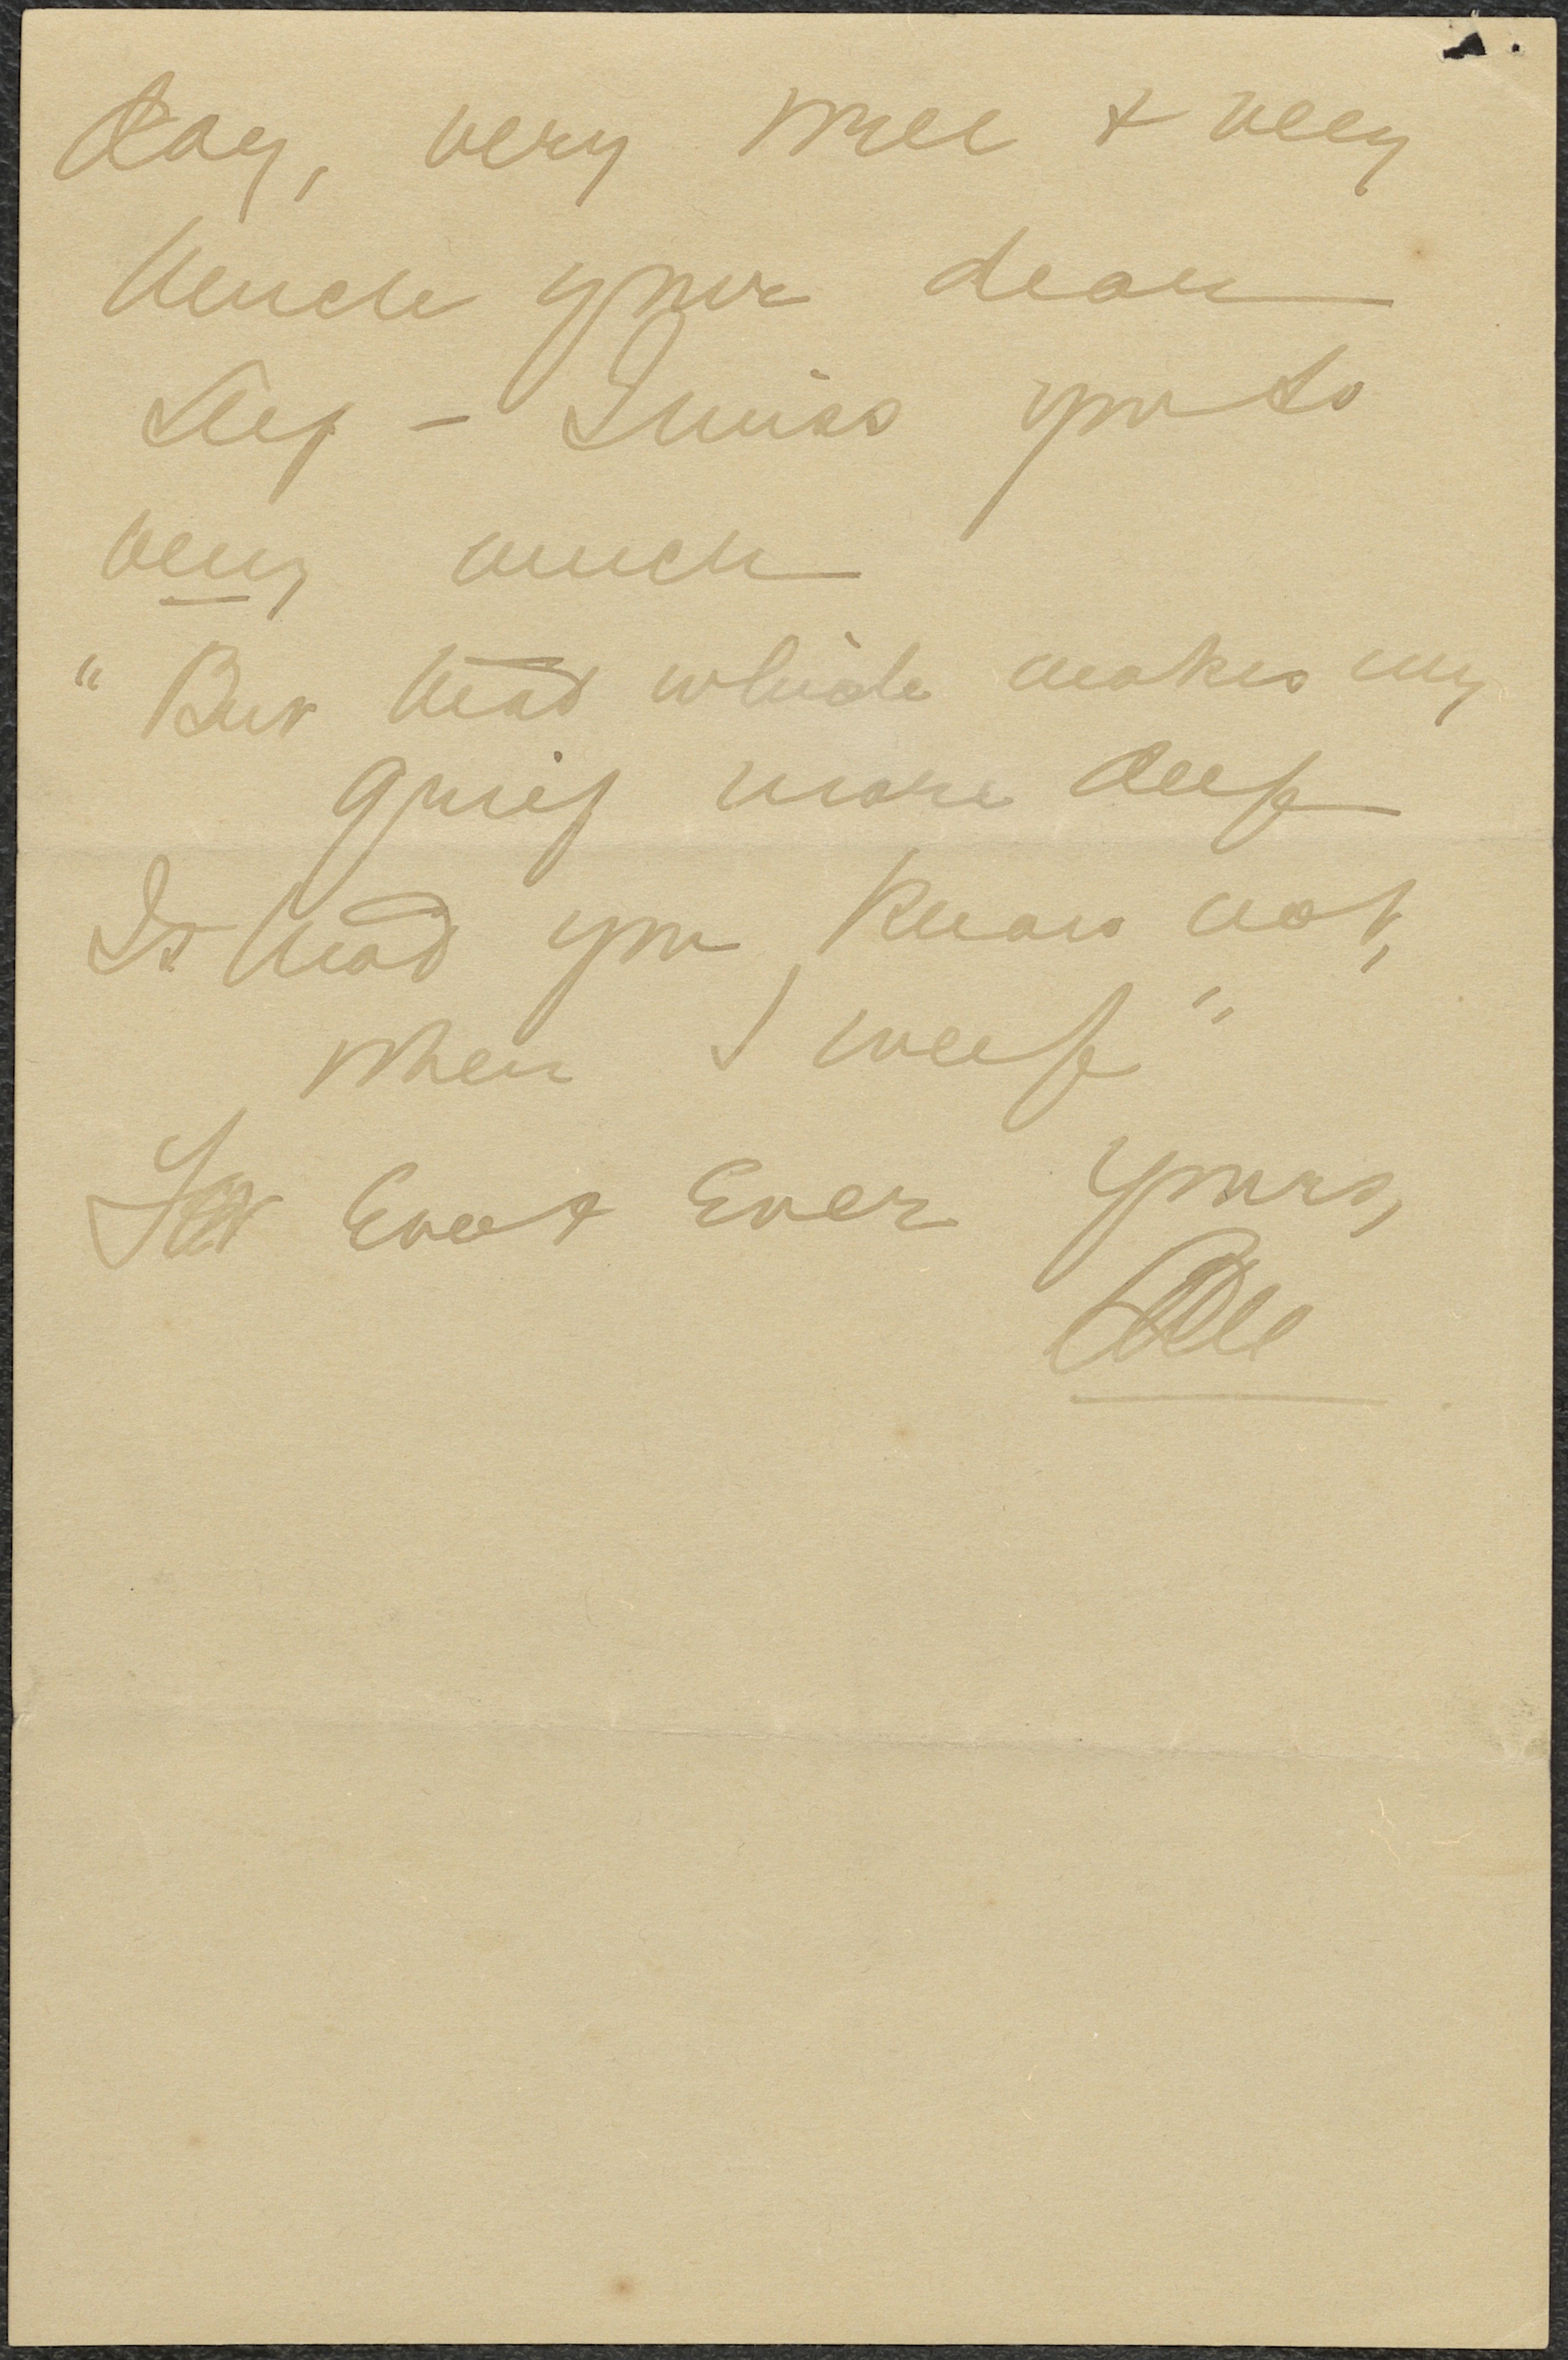 day, very well & very
much your dear
self - I miss you so
very much
" But that which makes my
grief more deep
Is that you know not,
when I weep "
For Ever & Ever yours,